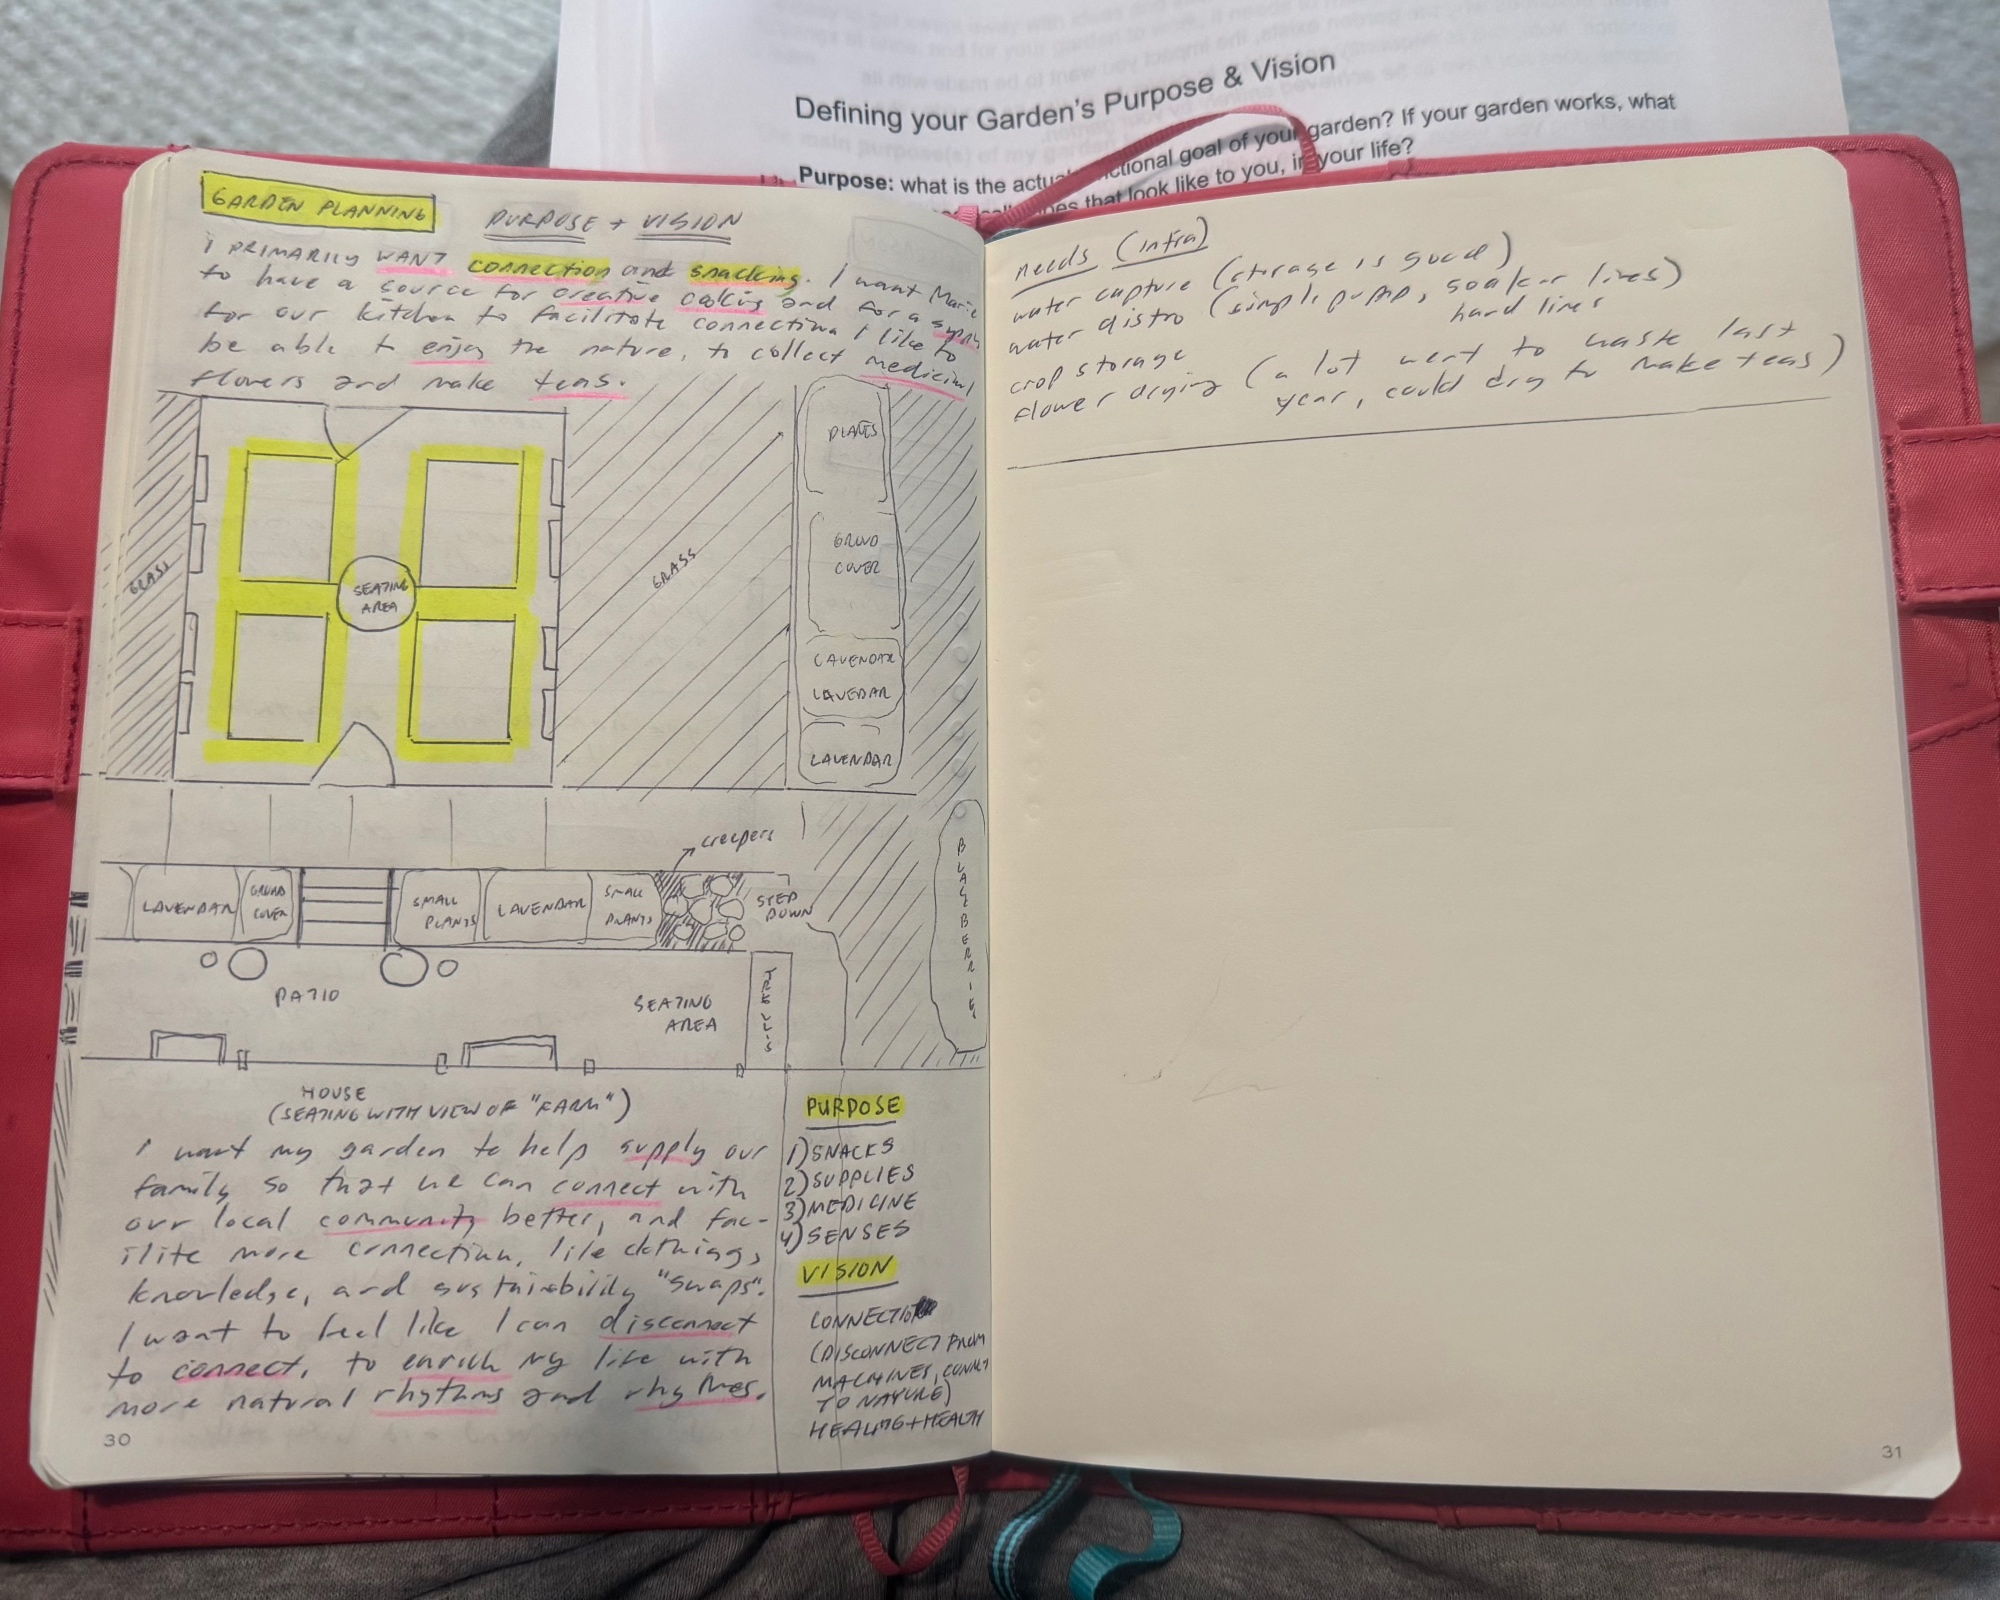 Defining your Garden's Purpose & Vision
Purpose: what is the actual functional goal of your garden? If your garden works, what
that look like to you, in your life?
GARDEN PLANNING
PURPOSE + VISION
I PRIMARILY WANT connection and snacking. I want Marie
to have a source for creative cooking and for a supply
for our kitchen to facilitate connection I like to
be able to enjoy the nature, to collect medicinal
flowers and make teas.
GRASS
SEATING
AREA
GRASS
PLANTS
GRUND
COVER
LAVENDAR
LAVEDAR
LAVENDAR
creepers
LAVENDAR
GRUND
COVER
SMALL
PLANTS
LAVENDAR
SMALL
PLANTS
STEP
DOWN
BLACKBERRIE
PATIO
SEATING
AREA
TRELLIS
HOUSE
(SEATING WITH VIEW OF "FARM")
I want my garden to help supply our
family so that we can connect with
our local community better, and fac-
ilite more connection, like clothing,
knowledge, and sustainability "swaps".
I want to feel like I can disconnect
to connect, to enrich my life with
more natural rhythms and rhythms.
PURPOSE
1) SNACKS
2) SUPPLIES
3) MEDICINE
4) SENSES
VISION
CONNECTION
(DISCONNECT FROM
MACHINES, CONNECT
TO NATURE)
HEALING + HEALTH
30
needs (infra)
water capture (storage is good)
water distro (simple pump, soaker lines)
hard lines
crop storage
flower drying (a lot went to waste last
year, could dry to make teas)
31